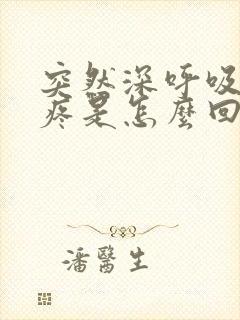 突然深呼吸
疼是怎麼回
潘醫生